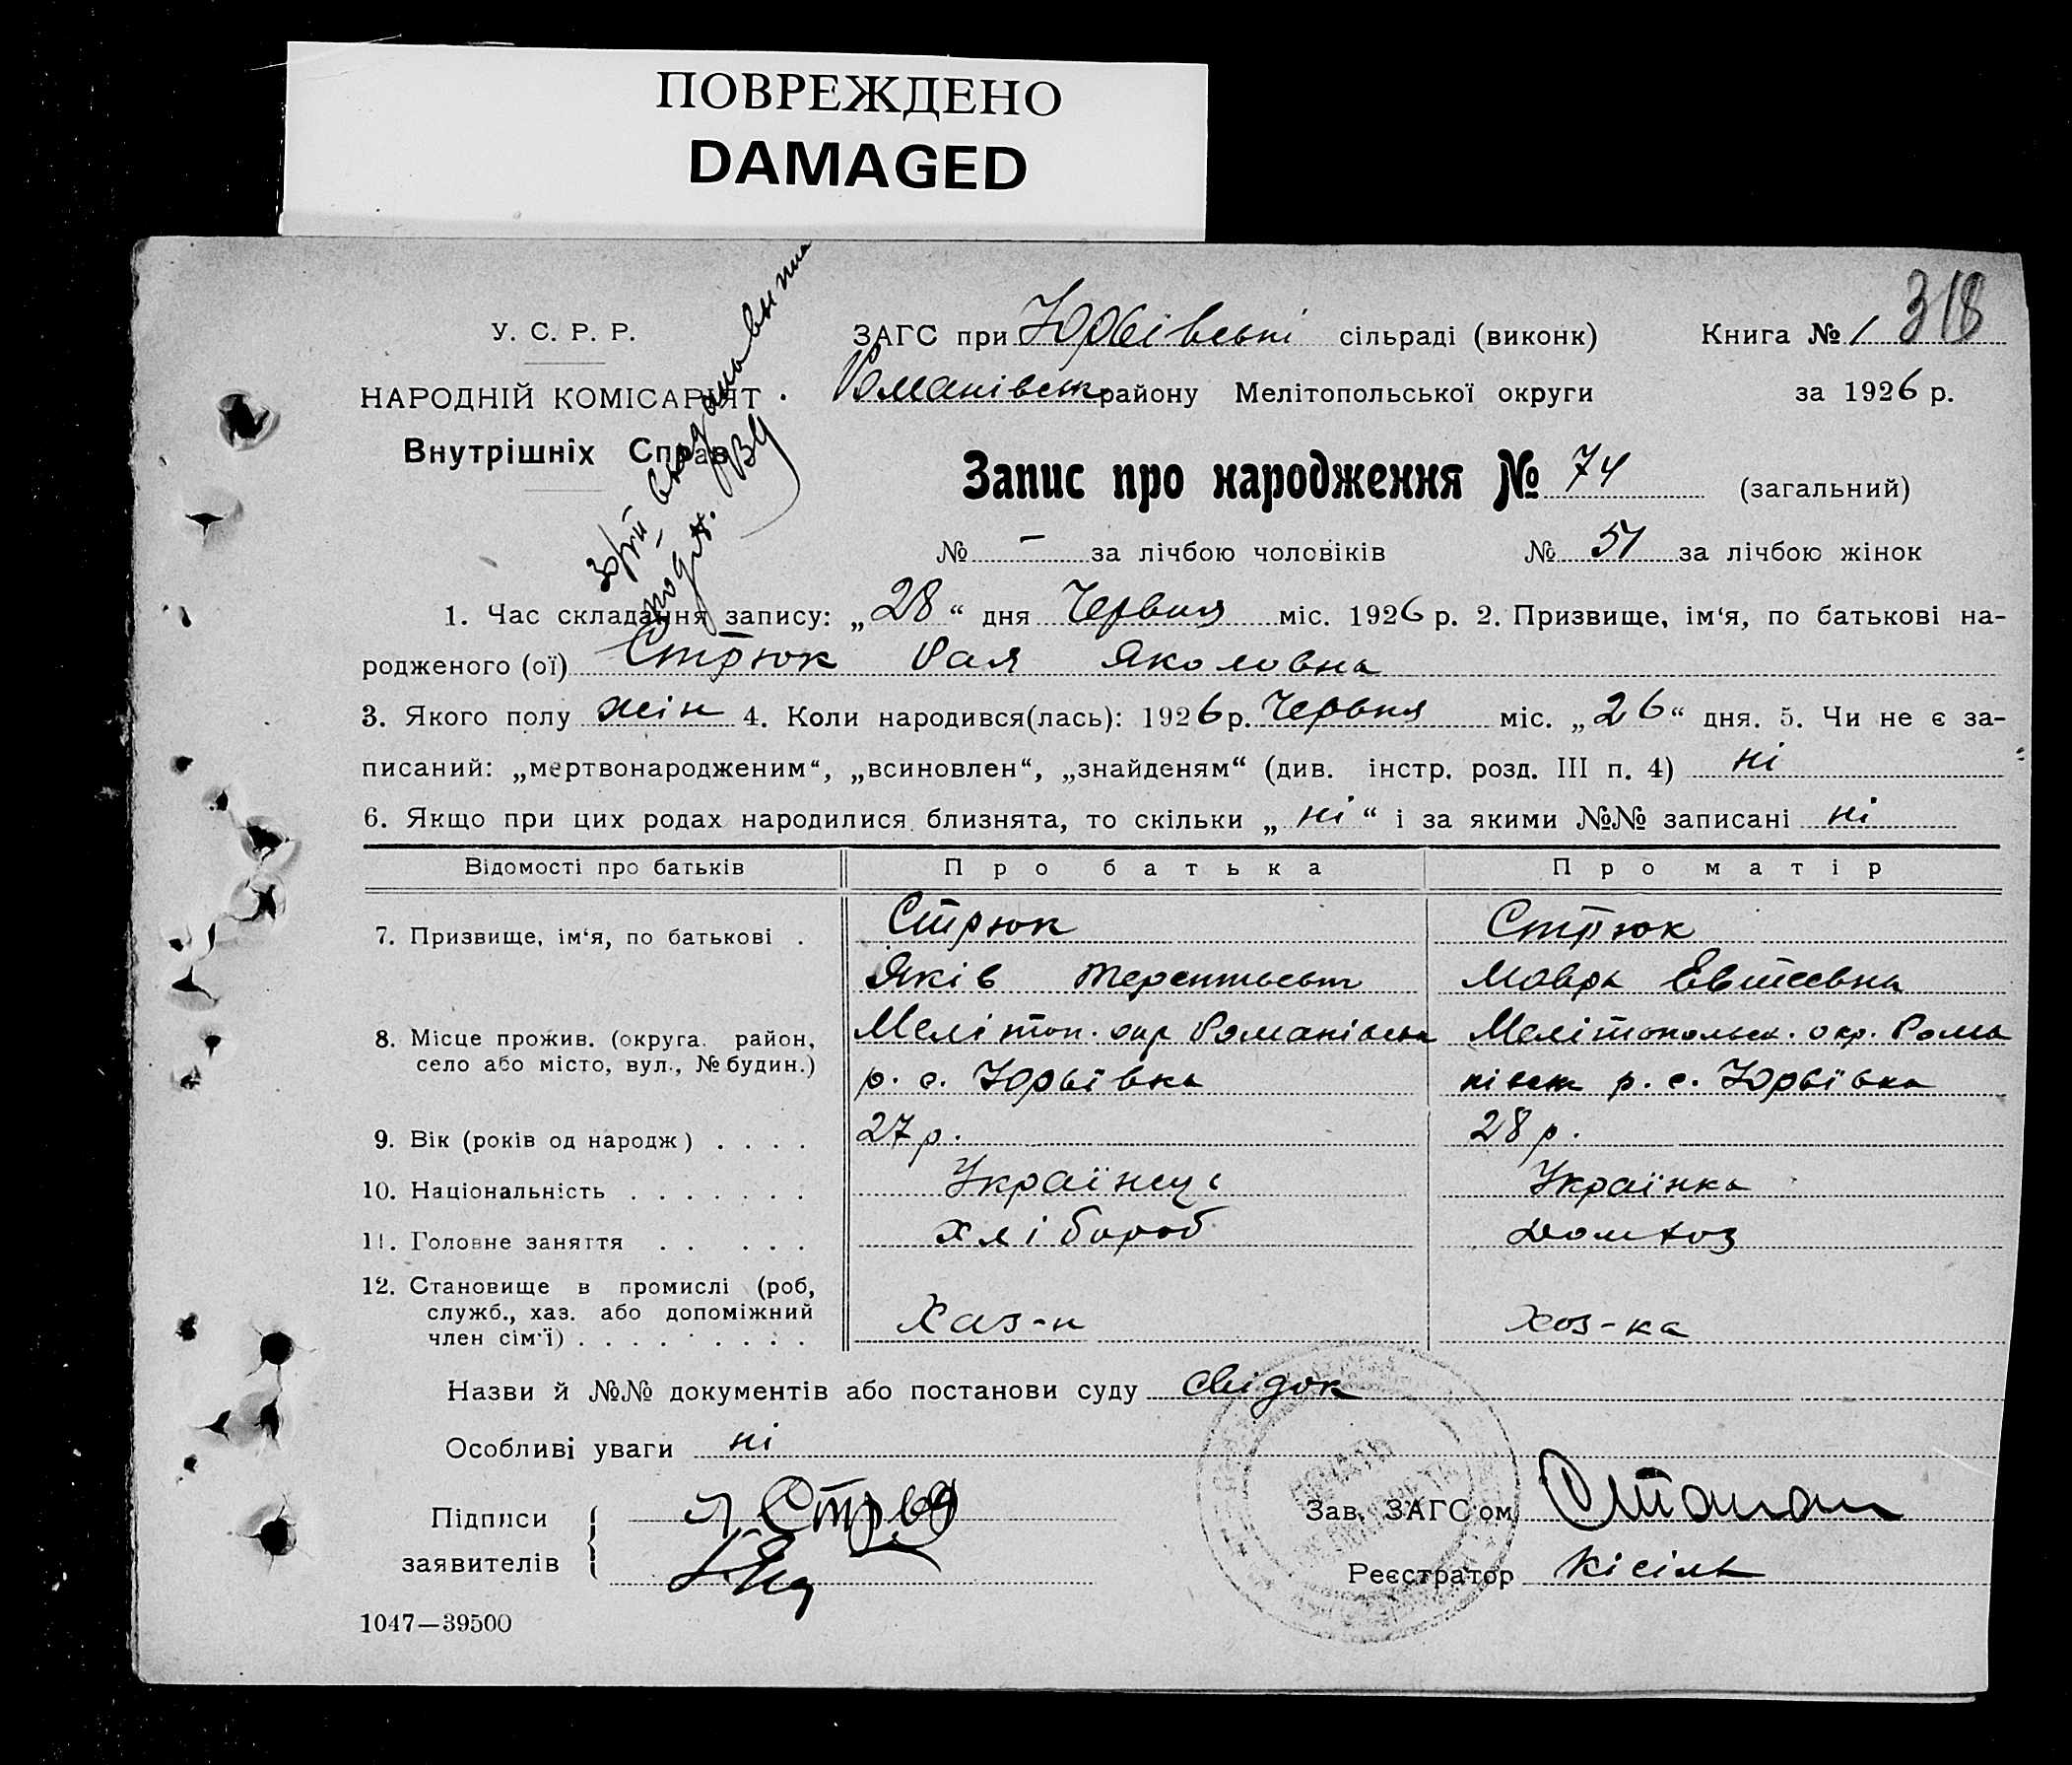 ПОВРЕЖДЕНО
DAMAGED
318
У. С. Р. Р.
НАРОДНІЙ КОМІСАРІЯТ
Внутрішніх Справ
ЗАГС при Юрьївські сільраді (виконк) Книга № 1
Романівськ району Мелітопольської округи за 1926 р.
Запис про народження № 74 (загальний)
№ – за лічбою чоловіків № 51 за лічбою жінок
1. Час складання запису: „28“ дня Червня міс. 1926 р. 2. Призвище, ім‘я, по батькові на-
родженого (ої) Стрюк Рая Якововна
3. Якого полу жін 4. Коли народився(лась): 1926 р. Червня міс. „26“ дня. 5. Чи не є за-
писаний: „мертвонародженим“, „всиновлен“, „знайденям“ (див. інстр. розд. III п. 4) ні
6. Якщо при цих родах народилися близнята, то скільки „ні“ і за якими №№ записані ні
Відомості про батьків Про батька Про матір
7. Призвище, ім‘я, по батькові . Стрюк Стрюк
Яків Мавра Евтеевна
8. Місце прожив. (округа. район, Меліноп. окр Романівськ Мелітопольск. окр. Рома
село або місто, вул., № будин.) р. с. Юрьївка нівськ р. с. Юрьївка
9. Вік (років од народж) . . . . 27 р. 28 р.
10. Національність . . . . . . . Українець Українка
11. Головне заняття . . . . . Хлібороб Домхоз
12. Становище в промислі (роб,
служб., хаз. або допоміжний
член сім‘ї) . . . . . . . . Хаз-н Хоз-ка
Назви й №№ документів або постанови суду свідок
Особливі уваги ні
Підписи
заявителів
Зав. ЗАГСом
Реєстратор Кісіль
1047—39500